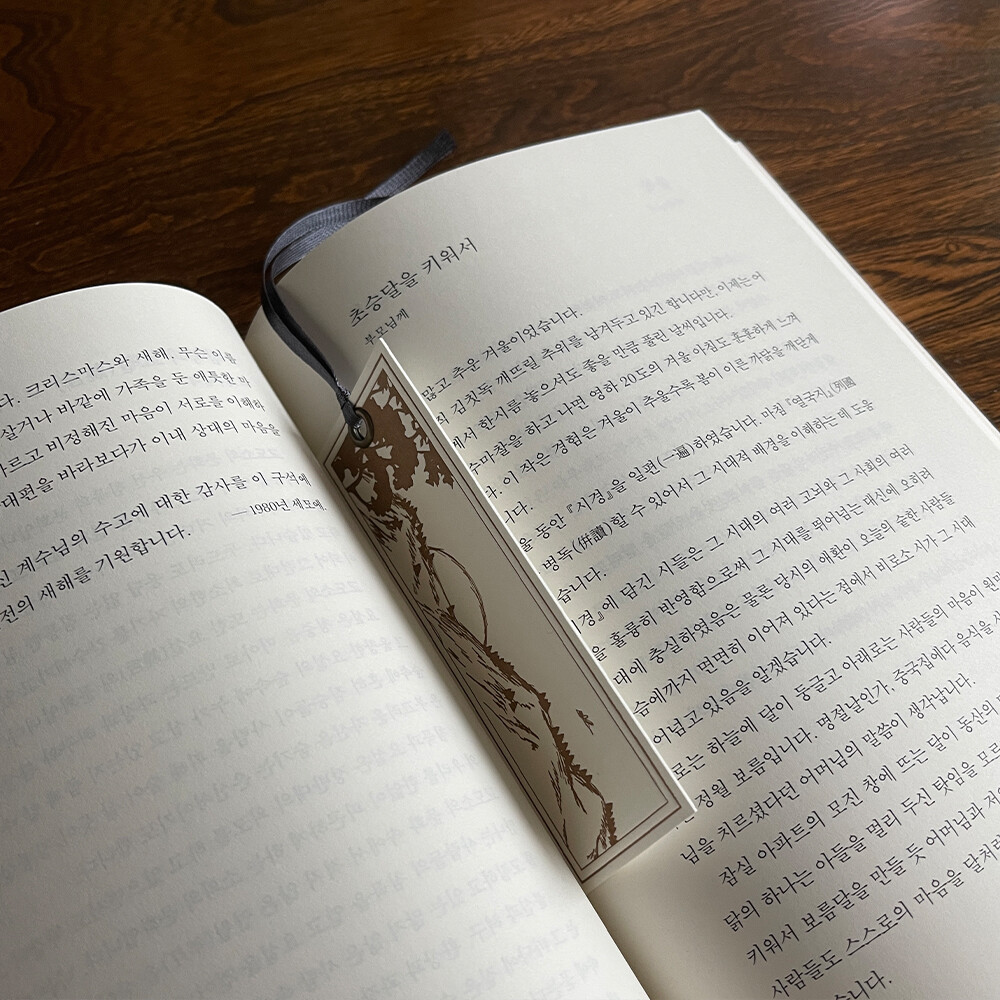 다. 크리스마스와 새해, 무슨 이름
살거나 바깥에 가족을 둔 애틋한 마
르고 비정해진 마음이 서로를 이해하
대편을 바라보다가 이내 상대의 마음을
신 계수님의 수고에 대한 감사를 이 구석에
전의 새해를 기원합니다.
― 1980년 세모에.
초승달을 키워서
부모님께
많고 추운 겨울이었습니다.
김칫독 깨뜨릴 추위를 남겨두고 있긴 합니다만, 이제는 어
에서 한시름 놓으셔도 좋을 만큼 풀린 날씨입니다.
수마찰을 하고, 나면 영하 20도의 겨울 아침도 훈훈하게 느껴
다. 이 작은 경험은 겨울이 추울수록 봄이 이른 까닭을 깨단케
니다.
울 동안 『시경』을 일편(一遍)하였습니다. 마침 『열국지』(列國
병독(倂讀)할 수 있어서 그 시대적 배경을 이해하는 데 도움
습니다.
경』에 담긴 시들은 그 시대의 여러 고뇌와 그 사회의 여러
을 훌륭히 반영함으로써 그 시대를 뛰어넘는 대신에 오히려
대에 충실하였음은 물론 당시의 애환이 오늘의 숱한 사람들
슴에까지 면면히 이어져 있다는 점에서 비로소 시가 그 시대
어넘고 있음을 알겠습니다.
로는 하늘에 달이 둥글고 아래로는 사람들의 마음이 원만
정월 보름입니다. 명절날인가, 중국집에다 음식을 시
님을 치르셨다던 어머님의 말씀이 생각납니다.
잠실 아파트의 모진 창에 뜨는 달이 동산의
닭의 하나는 아들을 멀리 두신 탓임을 모르
키워서 보름달을 만들 듯 어머님과 저
사람들도 스스로의 마음을 달처럼
습니다.